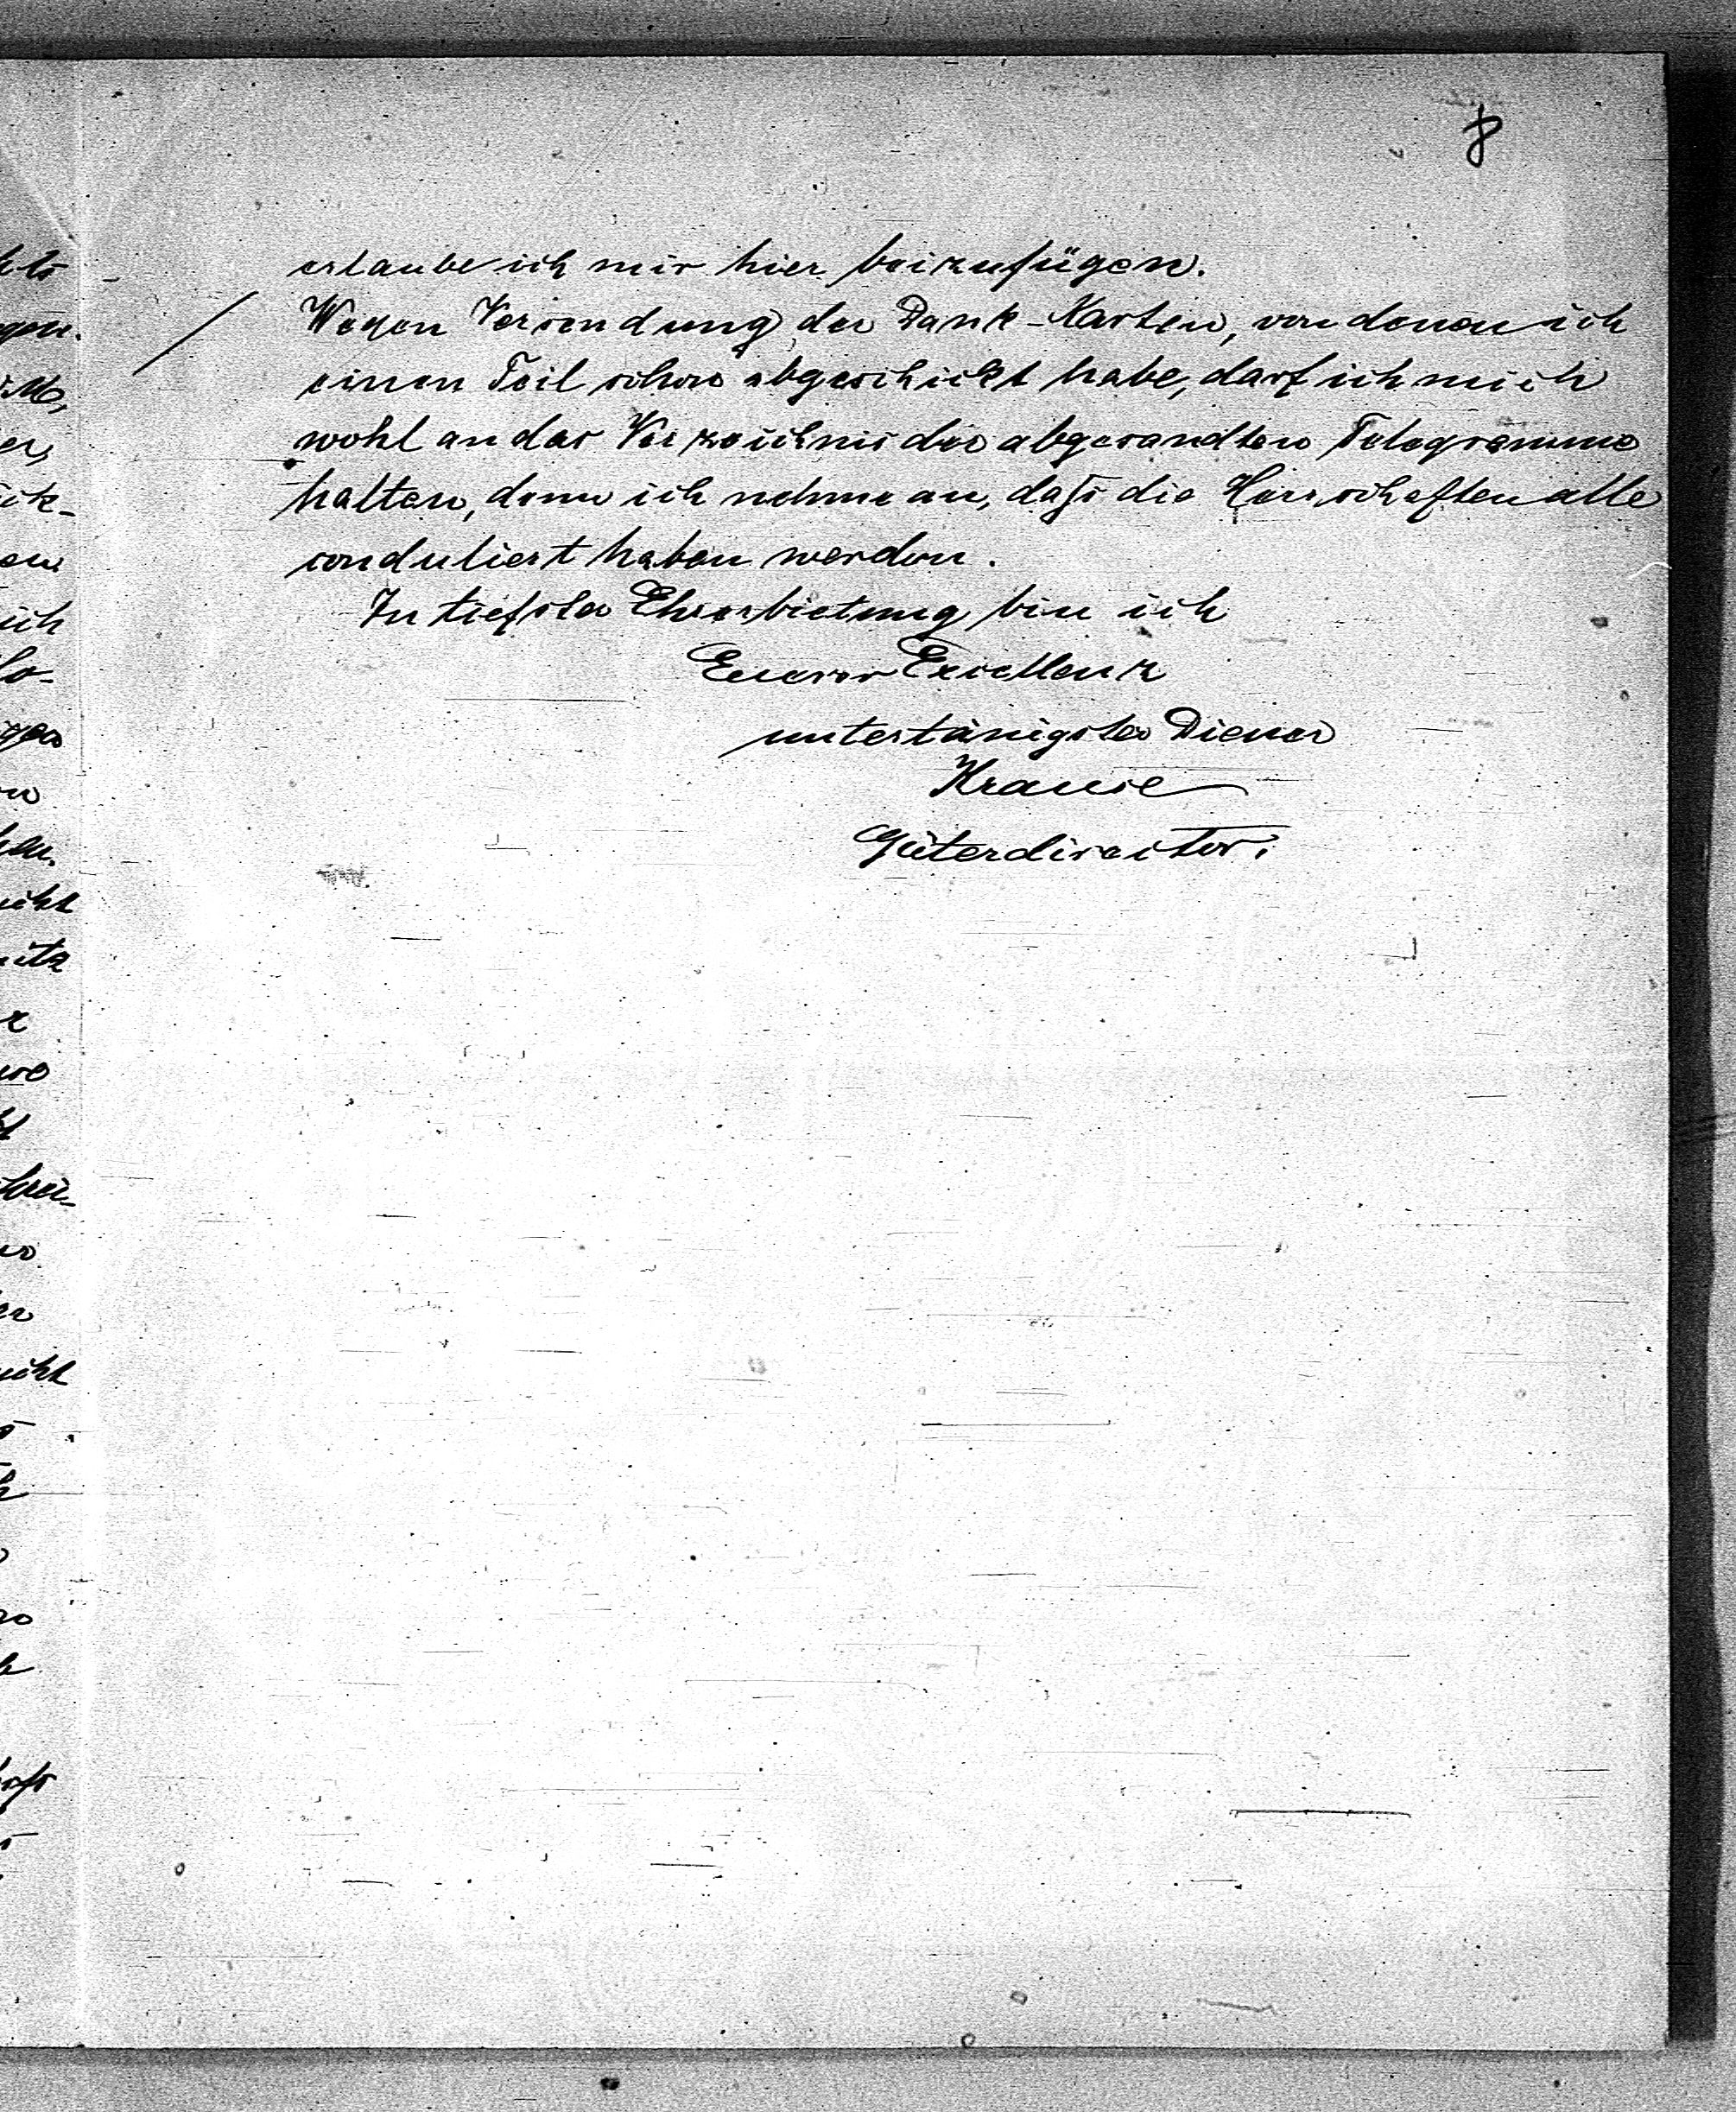 8
erlaube ich mir hier beizufügen.
Wegen Versendung der Dank-Karten, von denen ich
einen Teil schon abgeschickt habe, darf ich mich
wohl an das Verzeichnis der abgesandten Telegramme
halten, denn ich nehme an, daß die Herrschaften alle
conduliert haben werden.
In tiefster Ehrerbietung bin ich
Euerer Excellenz
untertänigster Diener
Krause
Güterdirector.